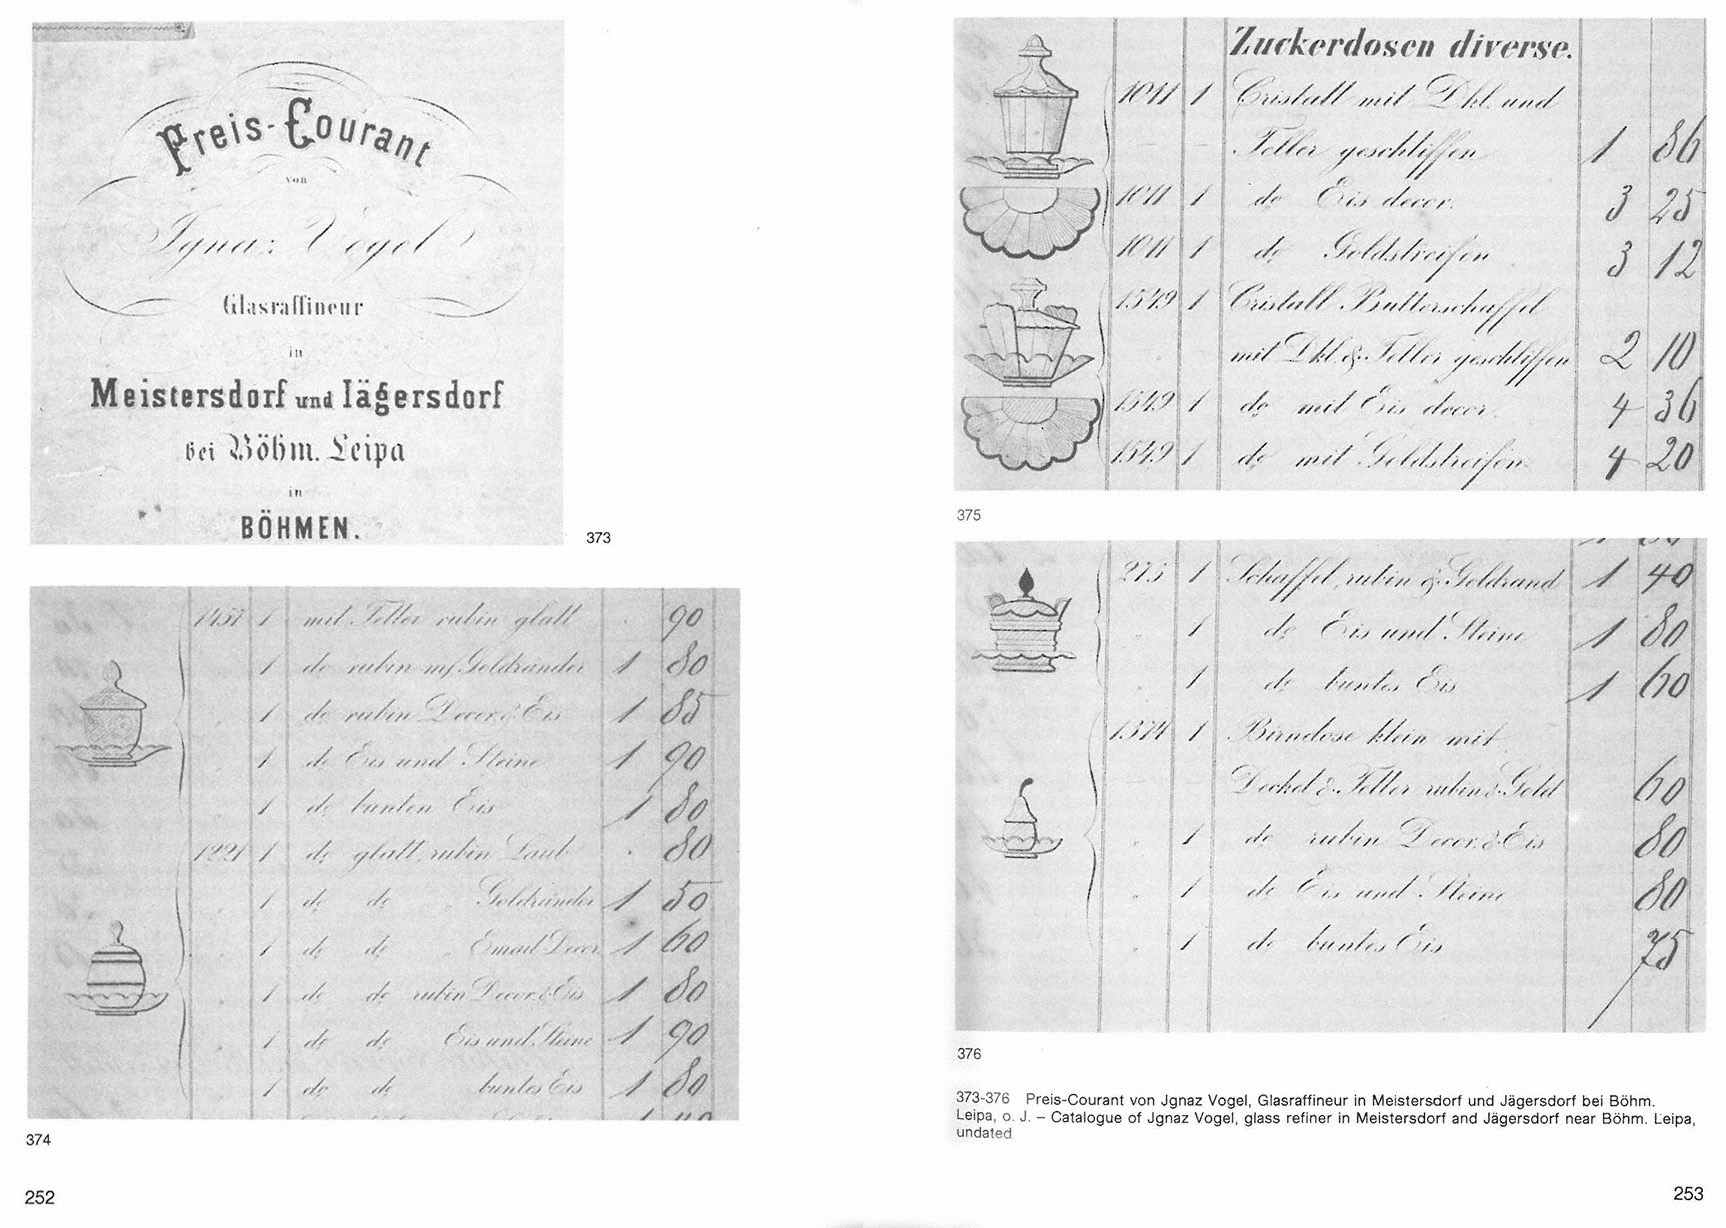 Preis-Courant
von
Ignaz Vogel
Glasraffineur
in
Meistersdorf und Jägersdorf
bei Böhm. Leipa
in
BÖHMEN.
373
1457 1 mit Teller rubin glatt " 90
1 do rubin m/Goldränder 1 80
" 1 do rubin Decor & Eis 1 85
" 1 do Eis und Steine 1 90
1 do bunten Eis 1 80
1221 1 do glatt, rubin Laub " 80
" 1 do do " Goldränder 1 50
" 1 do do " Email Decor 1 60
" 1 do do rubin Decor & Eis 1 80
" 1 do do Eis und Steine 1 90
1 do do buntes Eis 1 80
374
252
Zuckerdosen diverse.
1011 1 Cristall mit Dkl. und
Teller geschliffen 1 86
1011 1 do Eis decor. 3 25
1011 1 do Goldstreifen 3 12
1549 1 Cristall Butterschaffel
mit Dkl. & Teller geschliffen 2 10
1549 1 do mit Eis decor 4 36
1549 1 do mit Goldstreifen 4 20
375
275 1 Schaffel, rubin & Goldrand 1 40
" 1 do Eis und Steine 1 80
" 1 do buntes Eis 1 60
1374 1 Birndose klein mit
Deckel & Teller rubin & Gold 60
" 1 do rubin Decor. & Eis 80
" 1 do Eis und Steine 80
" 1 do buntes Eis 75
376
373-376 Preis-Courant von Jgnaz Vogel, Glasraffineur in Meistersdorf und Jägersdorf bei Böhm.
Leipa, o. J. – Catalogue of Jgnaz Vogel, glass refiner in Meistersdorf and Jägersdorf near Böhm. Leipa,
undated
253